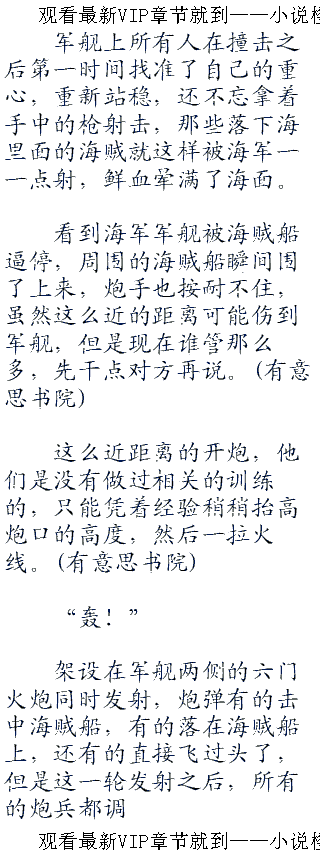 观看最新VIP章节就到——小说
军舰上所有人在撞击之
后第一时间找准了自己的重
心，重新站稳，还不忘拿着
手中的枪射击，那些落下海
里面的海贼就这样被海军一
一点射，鲜血晕满了海面。
看到海军军舰被海贼船
逼停，周围的海贼船瞬间围
了上来，炮手也按耐不住，
虽然这么近的距离可能伤到
军舰，但是现在谁管那么
多，先干点对方再说。(有意
思书院)
这么近距离的开炮，他
们是没有做过相关的训练
的，只能凭着经验稍稍抬高
炮口的高度，然后一拉火
线。(有意思书院)
“轰！”
架设在军舰两侧的六门
火炮同时发射，炮弹有的击
中海贼船，有的落在海贼船
上，还有的直接飞过头了，
但是这一轮发射之后，所有
的炮兵都调
观看最新VIP章节就到——小说